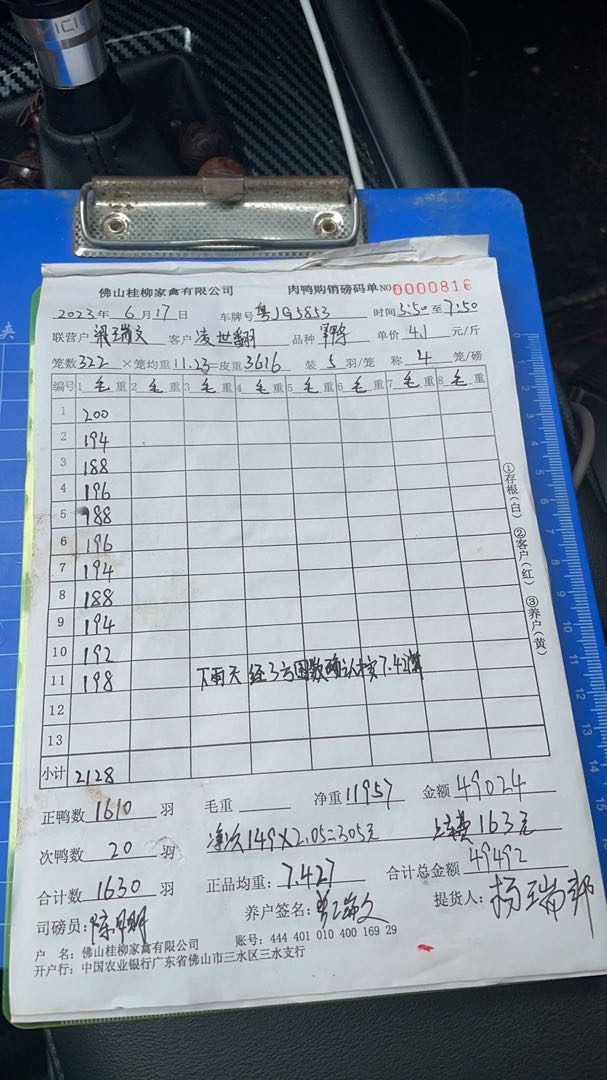 佛山桂柳家禽有限公司 肉鸭购销磅码单 NO 0000816
2023年 6月17日 车牌号 粤JG5853 时间 5:50 至 7:50
联营户 梁瑞文 客户 凌世翻 品种 单价 4.1 元/斤
笼数 322 ×笼均重 11.23 =皮重 3616 装 5 羽/笼 称 4 笼/磅
编号 1 毛 重 2 毛 重 3 毛 重 4 毛 重 5 毛 重 6 毛 重 7 毛 重 8 毛 重
1 200
2 194
3 188
4 196
5 188
6 196
7 194
8 188
9 194
10 192
11 198 下雨天 经3方 数确认按7.42算
12
13
小计 2128
①存根(白) ②客户(红) ③养户(黄)
正鸭数 1610 羽 毛重 净重 11957 金额 49024
次鸭数 20 羽 净次149×2.05=305元 费163元
合计数 1630 羽 正品均重: 7.427 合计总金额 49492
司磅员: 养户签名: 梁瑞文 提货人: 杨瑞邦
户 名: 佛山桂柳家禽有限公司 账号: 444 401 010 400 169 29
开户行: 中国农业银行广东省佛山市三水区三水支行